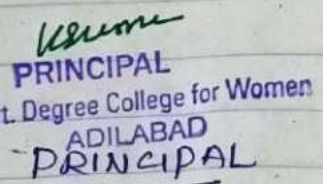 PRINCIPAL
t. Degree College for Women
ADILABAD
PRINCIPAL